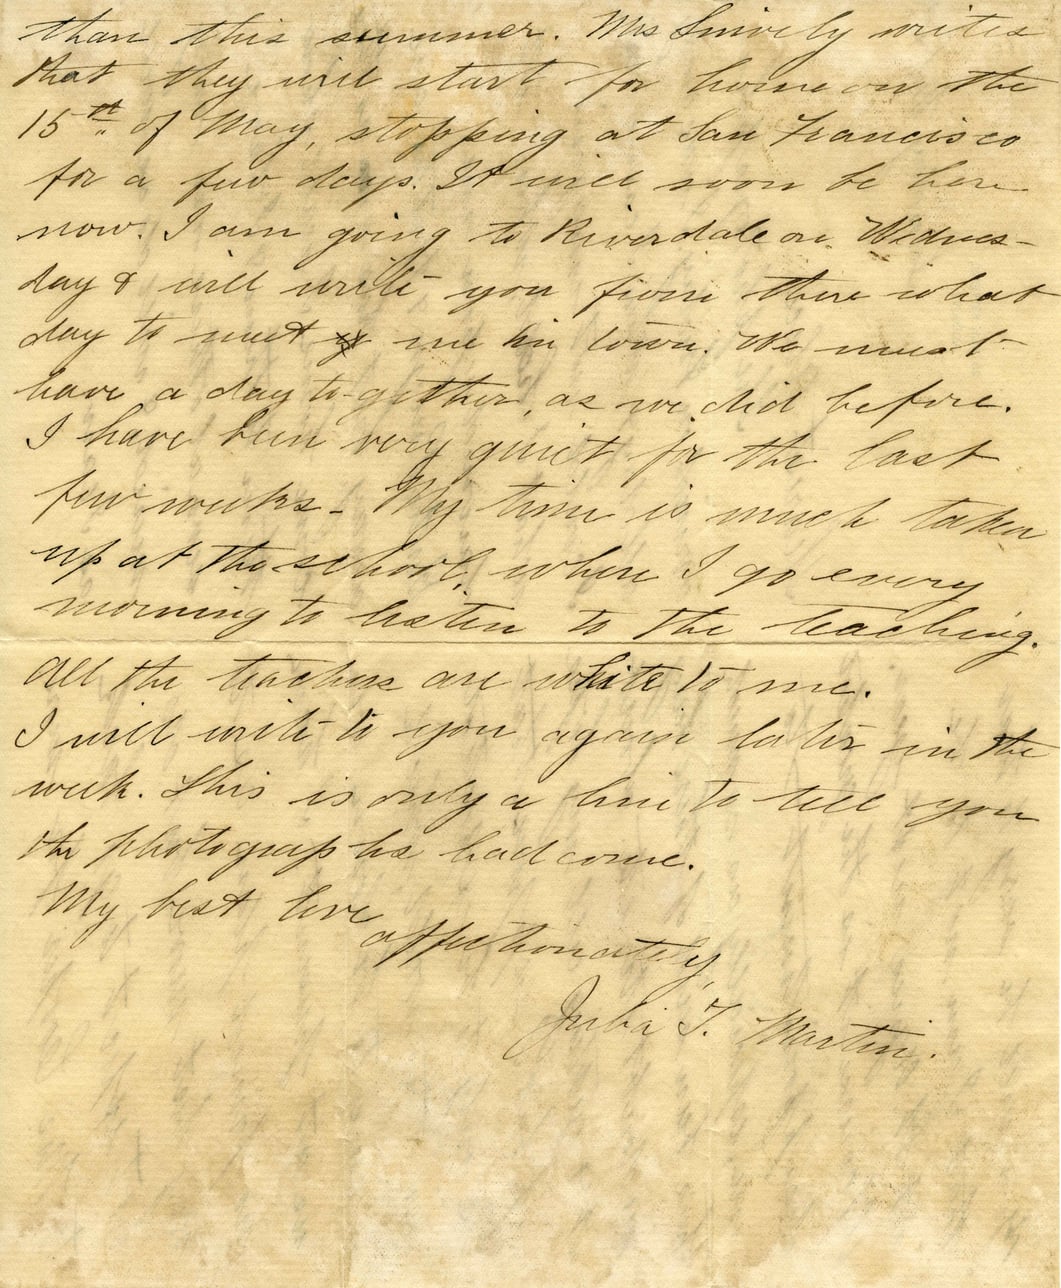 than this summer. Mrs Snively writes
that they will start for home on the
15th. of May, stopping at San Francisco
for a few days. It will soon be here
now. I am going to Riverdale on Wednes-
day & will write you from there what
day to meet me in town. We must
have a day to-gether, as we did before.
I have been very quiet for the last
few weeks - My time is much taken
up at the school, where I go every
morning to listen to the teaching.
All the teachers are white to me.
I will write to you again later in the
week. This is only a line to tell you
the photographs had come.
My best love
affectionately,
Julia T. Martin.